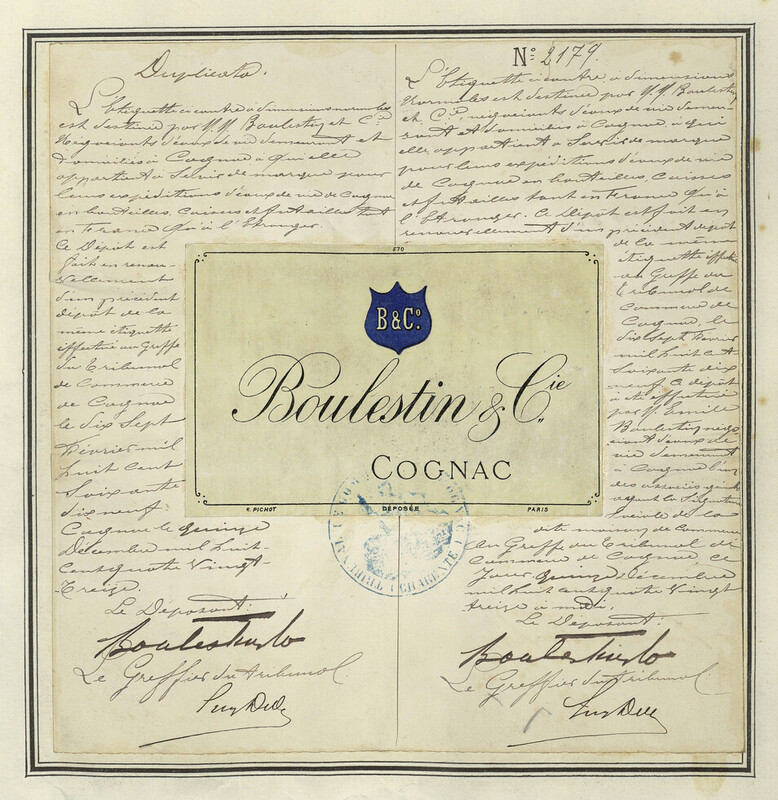 Duplicata.
L'étiquette ci contre à dimensions normales
est destinée par M.M. Boulestin et Cie
Négociants d'eaux de vie demeurant et
domiciliés à Cognac à qui elle
appartient à Servir de marque pour
leurs expéditions d'eaux de vie de Cognac
en bouteilles, caisses et futailles tant
en France qu'à l'Etranger.
Ce Dépôt est
fait en renou-
vellement
d'un précédent
dépôt de la
même étiquette
effectué au Greffe
du Tribunal
de Commerce
de Cognac
le dix Sept
Février mil
huit cent
soixante
dix neuf.
Cognac le quinze
Décembre mil huit-
cent quatre Vingt-
treize.
Le Déposant:
Boulestin & Co
Le Greffier du tribunal
No 2179.
L'étiquette ci contre à dimensions
Normales est destinée par M.M. Boulestin
et Cie, négociants d'eaux de vie demeu-
rant et domiciliés à Cognac, à qui
elle appartient à Servir de marque
pour leurs expéditions d'eaux de vie
de Cognac en bouteilles, caisses
et futailles tant en France qu'à
l'Etranger. Ce Dépôt est fait en
renouvellement d'un précédent dépôt
de la même
étiquette effectué
au Greffe du
Tribunal de
Commerce de
Cognac, le
dix Sept Février
mil huit cent
soixante dix
neuf. Ce dépôt
a été effectué
par M. Emile
Boulestin négo-
ciant d'eaux de
vie demeurant
à Cognac l'un
des associés
ayant la Signature
Sociale de la
dite maison de Commerce
au Greffe du Tribunal de
Commerce de Cognac, ce
jour quinze Décembre
mil huit cent quatre Vingt
treize à midi.
Le Déposant:
Boulestin & Co
Le Greffier du tribunal
670
B & Co.
Boulestin & Cie
COGNAC
E. PICHOT DÉPOSÉE PARIS
TRIBUNAL CHARENTE